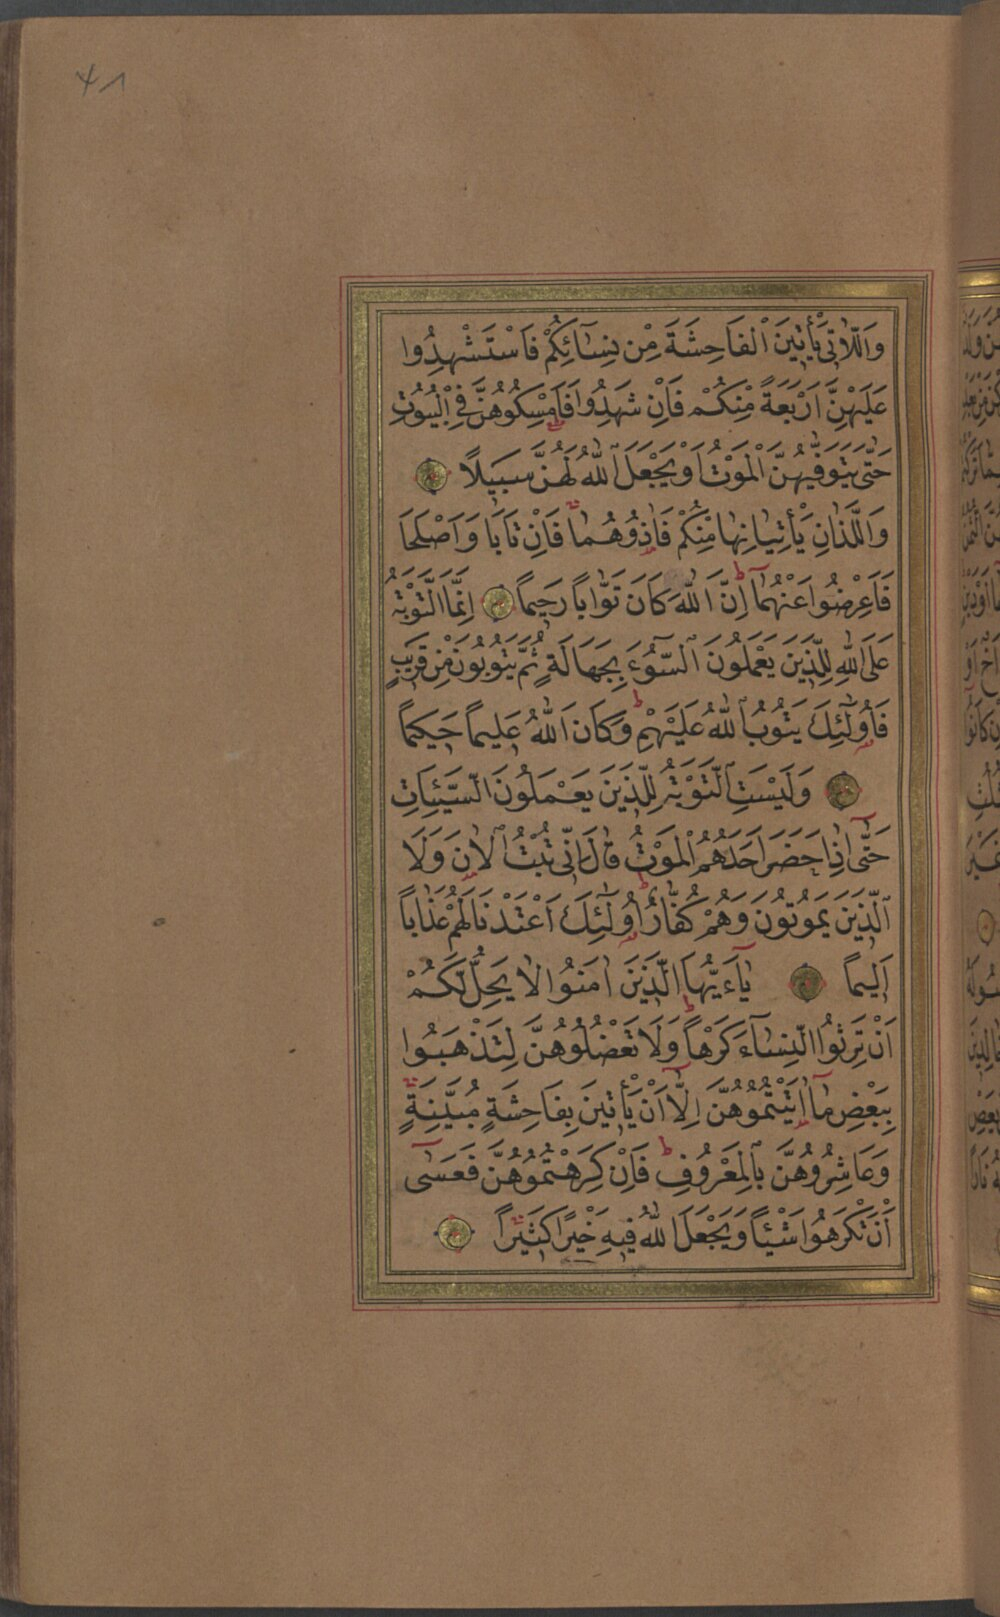 ٤٨
وَاللَّاتِي يَأْتِينَ الْفَاحِشَةَ مِنْ نِسَآئِكُمْ فَاسْتَشْهِدُوا
عَلَيْهِنَّ اَرْبَعَةً مِنْكُمْ فَاِنْ شَهِدُوا فَاَمْسِكُوهُنَّ فِي الْبُيُوتِ
حَتّٰى يَتَوَفّٰيهُنَّ الْمَوْتُ اَوْ يَجْعَلَ اللّٰهُ لَهُنَّ سَبِيلًا
وَاللَّذَانِ يَأْتِيَانِهَا مِنْكُمْ فَاٰذُوهُمَا فَاِنْ تَابَا وَاَصْلَحَا
فَاَعْرِضُوا عَنْهُمَا اِنَّ اللّٰهَ كَانَ تَوَّابًا رَحِيمًا اِنَّمَا التَّوْبَةُ
عَلَى اللّٰهِ لِلَّذِينَ يَعْمَلُونَ السُّوٓءَ بِجَهَالَةٍ ثُمَّ يَتُوبُونَ مِنْ قَرِيبٍ
فَاُولٰٓئِكَ يَتُوبُ اللّٰهُ عَلَيْهِمْ وَكَانَ اللّٰهُ عَلِيمًا حَكِيمًا
وَلَيْسَتِ التَّوْبَةُ لِلَّذِينَ يَعْمَلُونَ السَّيِّئَاتِ
حَتّٰٓى اِذَا حَضَرَ اَحَدَهُمُ الْمَوْتُ قَالَ اِنِّي تُبْتُ الْاٰنَ وَلَا
الَّذِينَ يَمُوتُونَ وَهُمْ كُفَّارٌ اُولٰٓئِكَ اَعْتَدْنَا لَهُمْ عَذَابًا
اَلِيمًا يَآ ءَيُّهَا الَّذِينَ اٰمَنُوا لَا يَحِلُّ لَكُمْ
اَنْ تَرِثُوا النِّسَآءَ كَرْهًا وَلَا تَعْضُلُوهُنَّ لِتَذْهَبُوا
بِبَعْضِ مَآ اٰتَيْتُمُوهُنَّ اِلَّآ اَنْ يَأْتِينَ بِفَاحِشَةٍ مُبَيِّنَةٍ
وَعَاشِرُوهُنَّ بِالْمَعْرُوفِ فَاِنْ كَرِهْتُمُوهُنَّ فَعَسٰٓى
اَنْ تَكْرَهُوا شَيْئًا وَيَجْعَلَ اللّٰهُ فِيهِ خَيْرًا كَثِيرًا